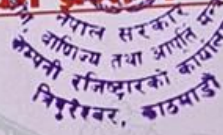 नेपाल सरकार
वाणिज्य तथा आपूर्ति
कम्पनी रजिष्ट्रारको कार्यालय
त्रिपुरेश्वर, काठमाडौं